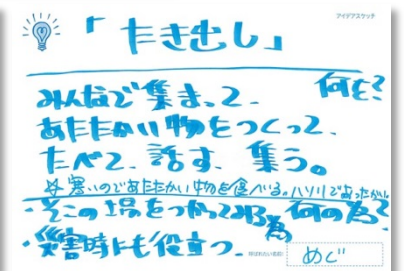 アイデアスケッチ
「たき出し」
何を?
みんなで集まって、
あたたかい物をつくって、
たべて、話す、集う。
☆寒いのであたたかい物を食べいる。
・その場をつかって
為 何の為?
・災害時にも役立つ。
呼ばれたい名前
めぐ